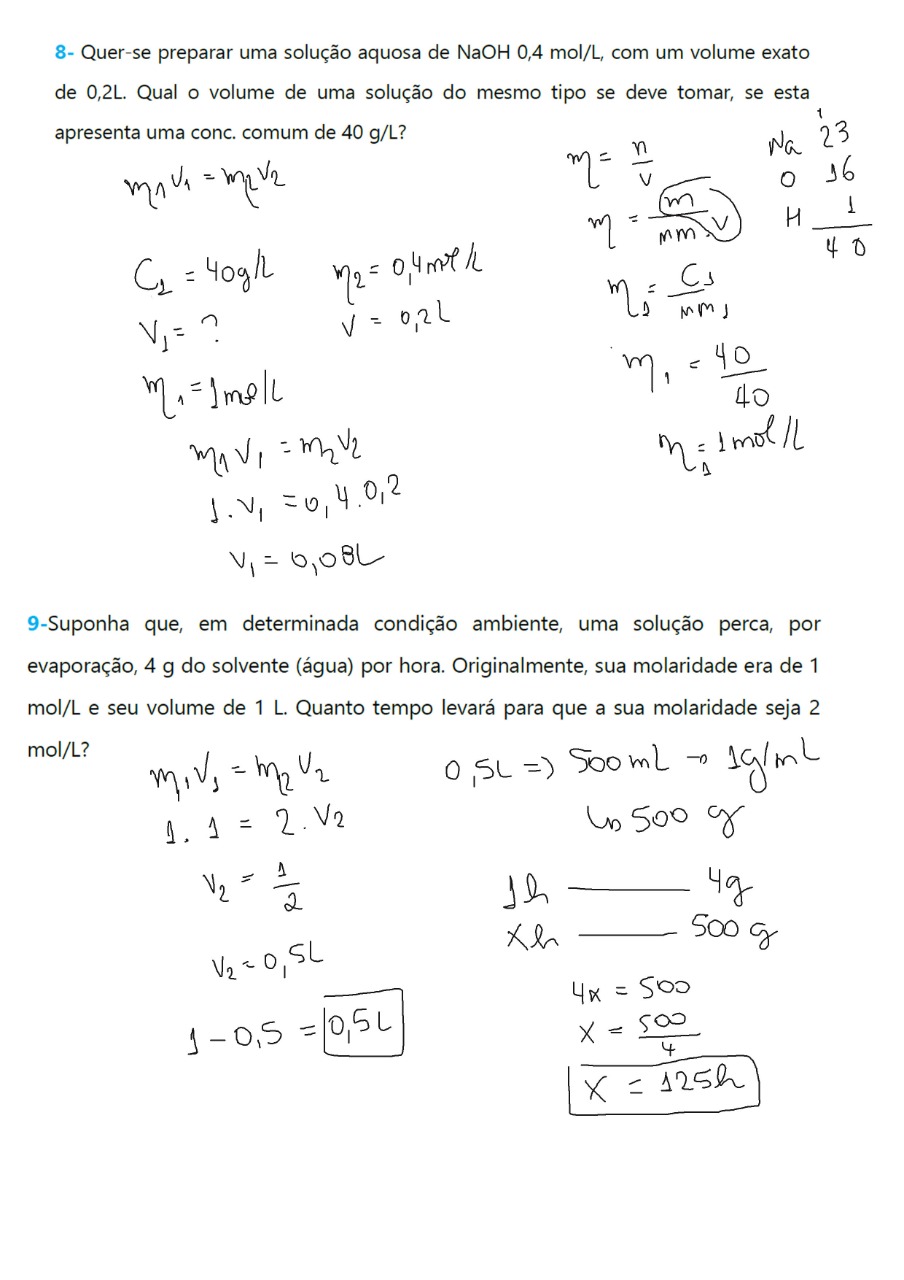 8- Quer-se preparar uma solução aquosa de NaOH 0,4 mol/L, com um volume exato
de 0,2L. Qual o volume de uma solução do mesmo tipo se deve tomar, se esta
apresenta uma conc. comum de 40 g/L?
m1V1 = m2V2
C1 = 40g/L
V1 = ?
m1 = 1mol/L
m2 = 0,4mol/L
V = 0,2L
m1V1 = m2V2
1.V1 = 0,4.0,2
V1 = 0,08L
m = n/V
m = m/mm.V
m1 = C1/mm1
m1 = 40/40
m1 = 1mol/L
1
Na 23
O 16
H 1
40
9-Suponha que, em determinada condição ambiente, uma solução perca, por
evaporação, 4 g do solvente (água) por hora. Originalmente, sua molaridade era de 1
mol/L e seu volume de 1 L. Quanto tempo levará para que a sua molaridade seja 2
mol/L?
m1V1 = m2V2
1.1 = 2.V2
V2 = 1/2
V2 = 0,5L
1-0,5 = 0,5L
0,5L => 500mL → 1g/mL
↳ 500 g
1h —— 4g
xh —— 500g
4x = 500
x = 500/4
x = 125h